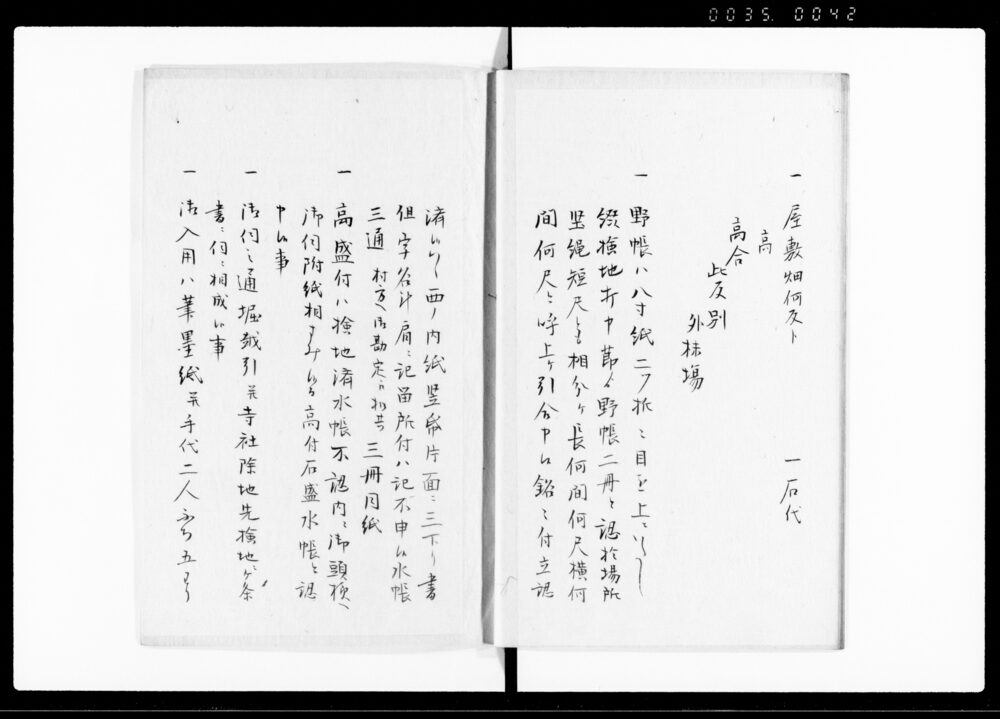 0035. 0042
一 屋敷畑何反ト 一 石代
高
高合
此反別
外秣場
一 野帳ハ八寸紙二ツ折ニ目を上ニいたし
綴検地打中節々野帳二冊ヽ認於場所
竪縄短尺とも相分ヶ長何間何尺横何
間何尺と呼上ヶ引合中候銘々付立認
済候ハヽ西ノ内紙竪帋片面ニ三下り書
但字名計肩ニ記留所付ハ記不申候水帳
三通 村方へ 御勘定 三冊同紙
一 高盛付ハ検地済水帳不認内ニ御頭様へ
御伺附紙相すみ候ハヽ高付石盛水帳ヽ認
中候事
一 御伺之通堀敷引并寺社除地先検地ヶ条
書ニ伺ニ相成候事
一 御入用ハ筆墨紙并手代二人五